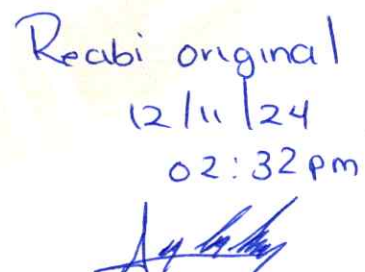 Reabi original
12/11/24
02:32 pm